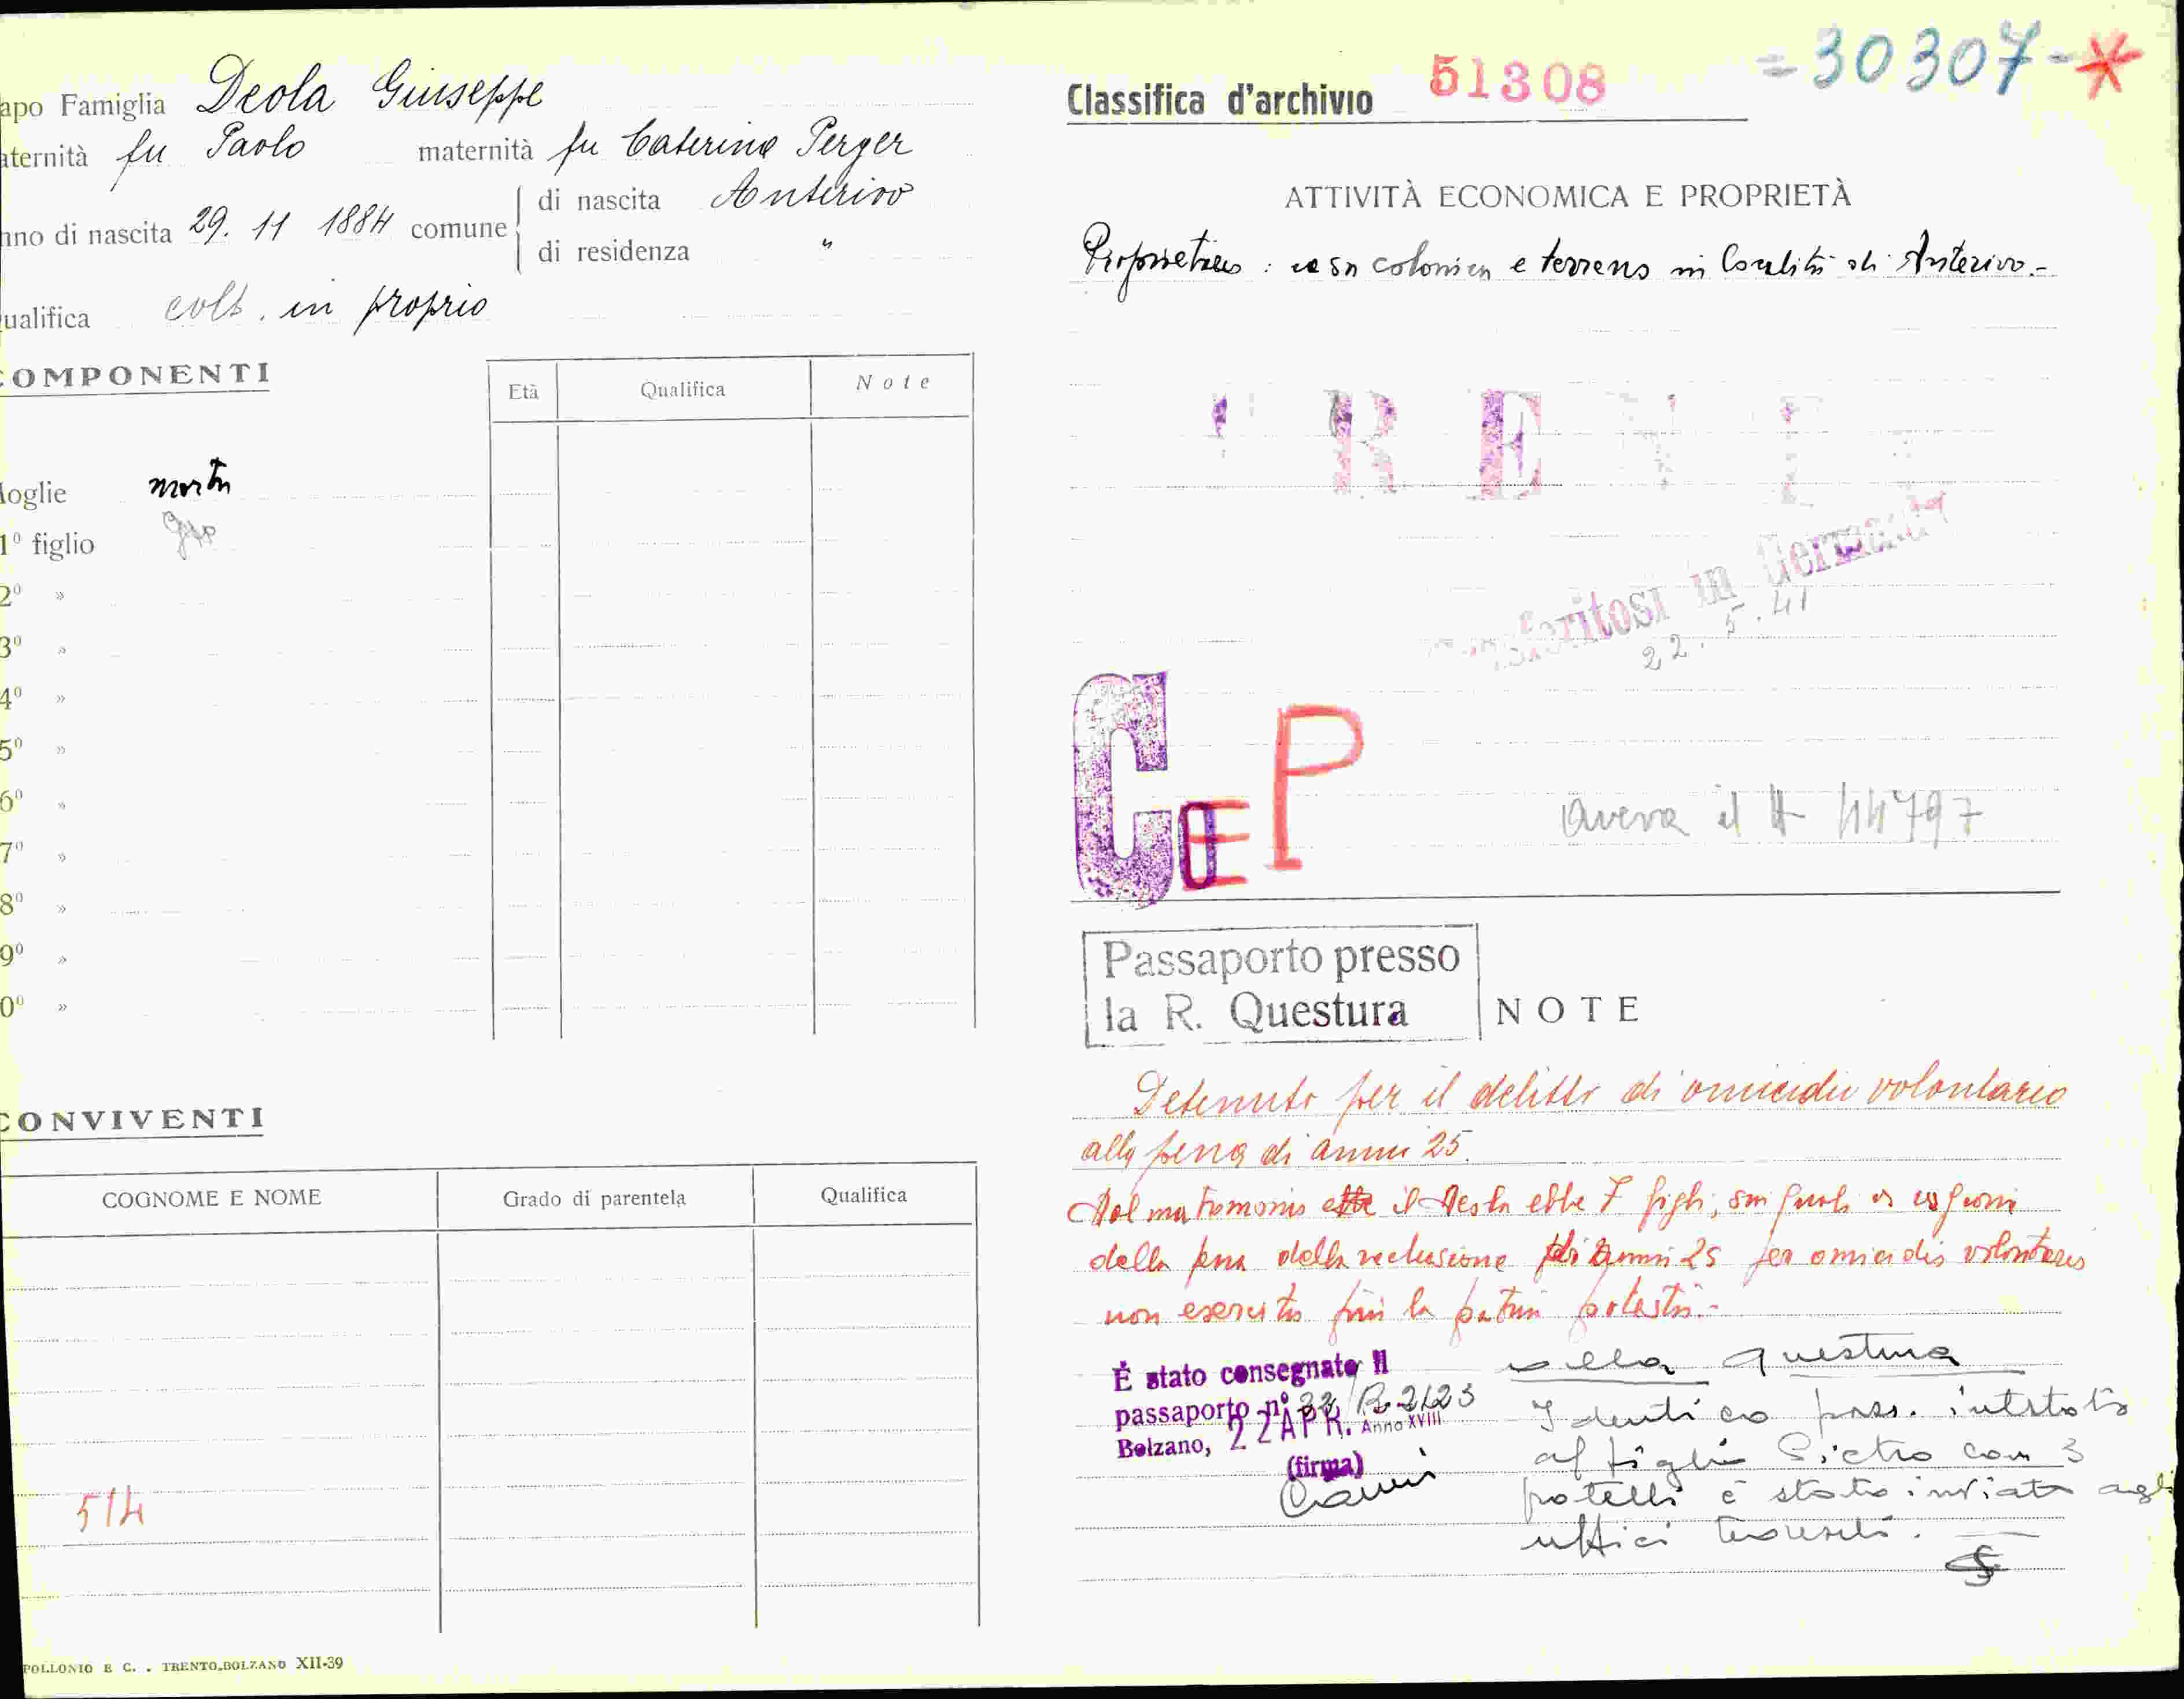 apo Famiglia Deola Giuseppe
aternità fu Paolo maternità fu Caterina Perger
nno di nascita 29. 11 1884 comune di nascita Anterivo
di residenza "
ualifica colt. in proprio
COMPONENTI
Età Qualifica Note
Moglie morta
1º figlio
2º »
3º »
4º »
5º »
6º »
7º »
8º »
9º »
0º »
CONVIVENTI
COGNOME E NOME Grado di parentela Qualifica
514
POLLONIO E C. . TRENTO-BOLZANO XII-39
Classifica d'archivio 51308 =30307-*
ATTIVITÀ ECONOMICA E PROPRIETÀ
Proprietario : casa colonica e terreno in località di Anterivo.-
feritosi in Germania
22.5.41
C P
aveva il 44797
Passaporto presso
la R. Questura
NOTE
Detenuto per il delitto di omicidio volontario
alla pena di anni 25.
Dal matrimonio ebbe il Deola ebbe 7 figli, sui quali a cagione
della pena della reclusione di anni 25 per omicidio volontario
non esercita più la patria potestà.-
È stato consegnato Il
passaporto nº 33/R-2123
Bolzano, 22 APR. Anno XVIII
(firma)
alla questura
Identico pass. intestato
al figlio Pietro con 3
fratelli è stato inviato agli
uffici tedeschi.